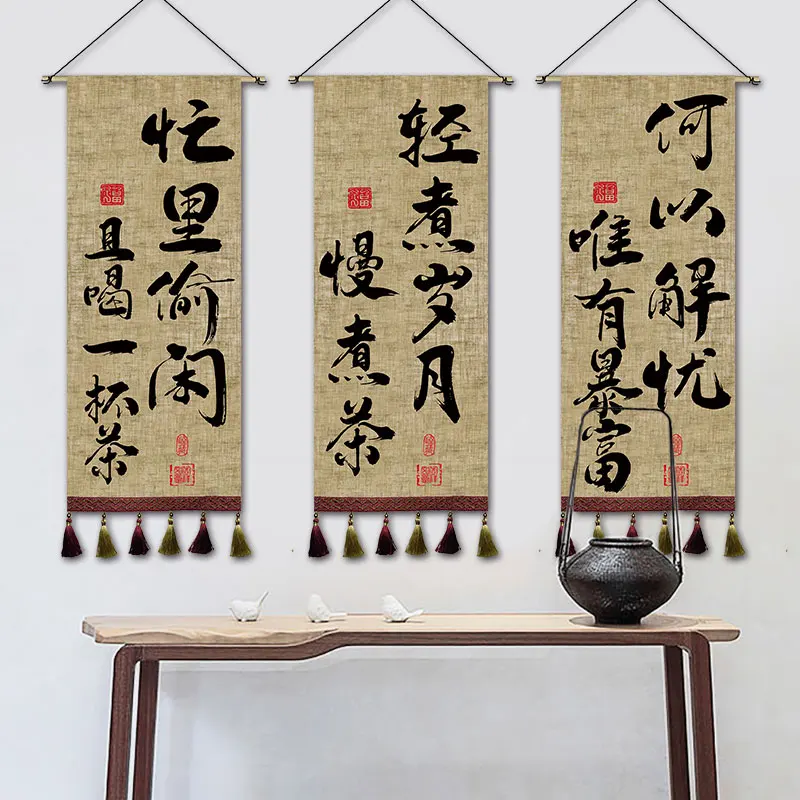 忙里偷闲
且喝一杯茶
轻煮岁月
慢煮茶
何以解忧
唯有暴富